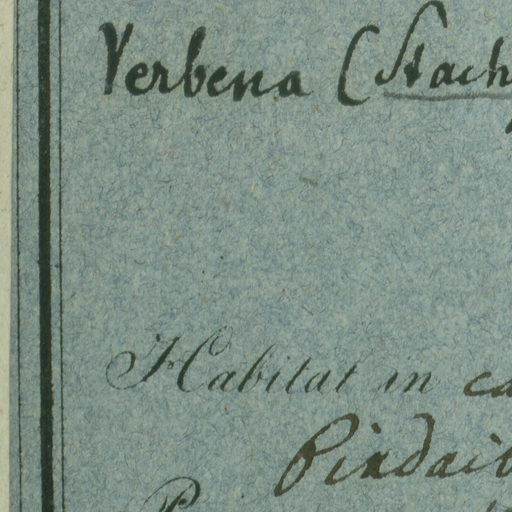 Verbena (Stach
Habitat in ca
Pindaib